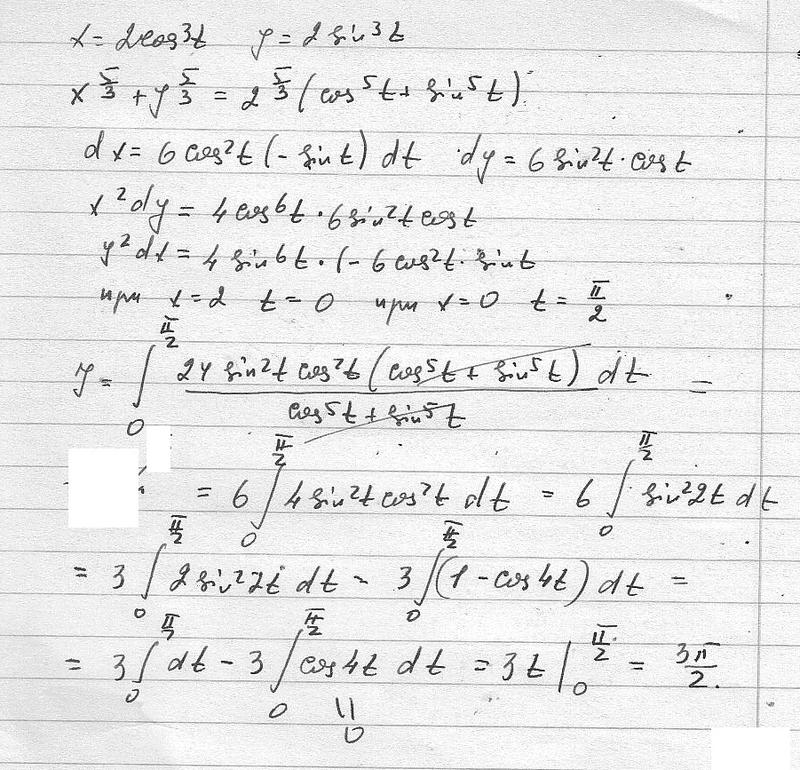 x = 2cos³t   y = 2 sin³t
x^{5/3} + y^{5/3} = 2^{5/3} (cos⁵t + sin⁵t)
dx = 6 cos²t (- sin t) dt   dy = 6 sin²t · cos t
x²dy = 4 cos⁶t · 6 sin²t cos t
y²dx = 4 sin⁶t · (- 6 cos²t · sin t
при x = 2   t = 0   при x = 0   t = π/2
J = ∫_0^{π/2} \frac{24 sin²t cos²t (cos⁵t + sin⁵t) dt}{cos⁵t + sin⁵t} =
= 6 ∫_0^{π/2} 4 sin²t cos²t dt = 6 ∫_0^{π/2} sin²2t dt
= 3 ∫_0^{π/2} 2 sin²2t dt = 3 ∫_0^{π/2} (1 - cos4t) dt =
= 3 ∫_0^{π/2} dt - 3 ∫_0^{π/2} cos4t dt = 3t |_0^{π/2} = 3π/2.
||
0